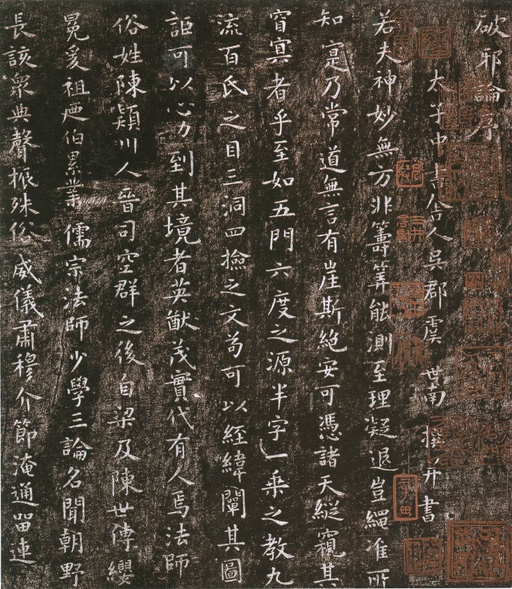 破邪論序
太子中書舍人吳郡虞世南撰并書
若夫神妙無方非籌筭能測至理凝邈豈繩准所
知寔乃常道無言有崖斯絕安可憑諸天縱窺其
窅冥者乎至如五門六度之源半字一乘之教九
流百氏之目三洞四撿之文苟可以經緯闡其圖
詎可以心力到其境者英猷茂實代有人焉法師
俗姓陳潁川人晉司空群之後自梁及陳世傳纓
冕爰祖迺伯累業儒宗法師少學三論名聞朝野
長該眾典聲振殊俗威儀肅穆介節淹通留連